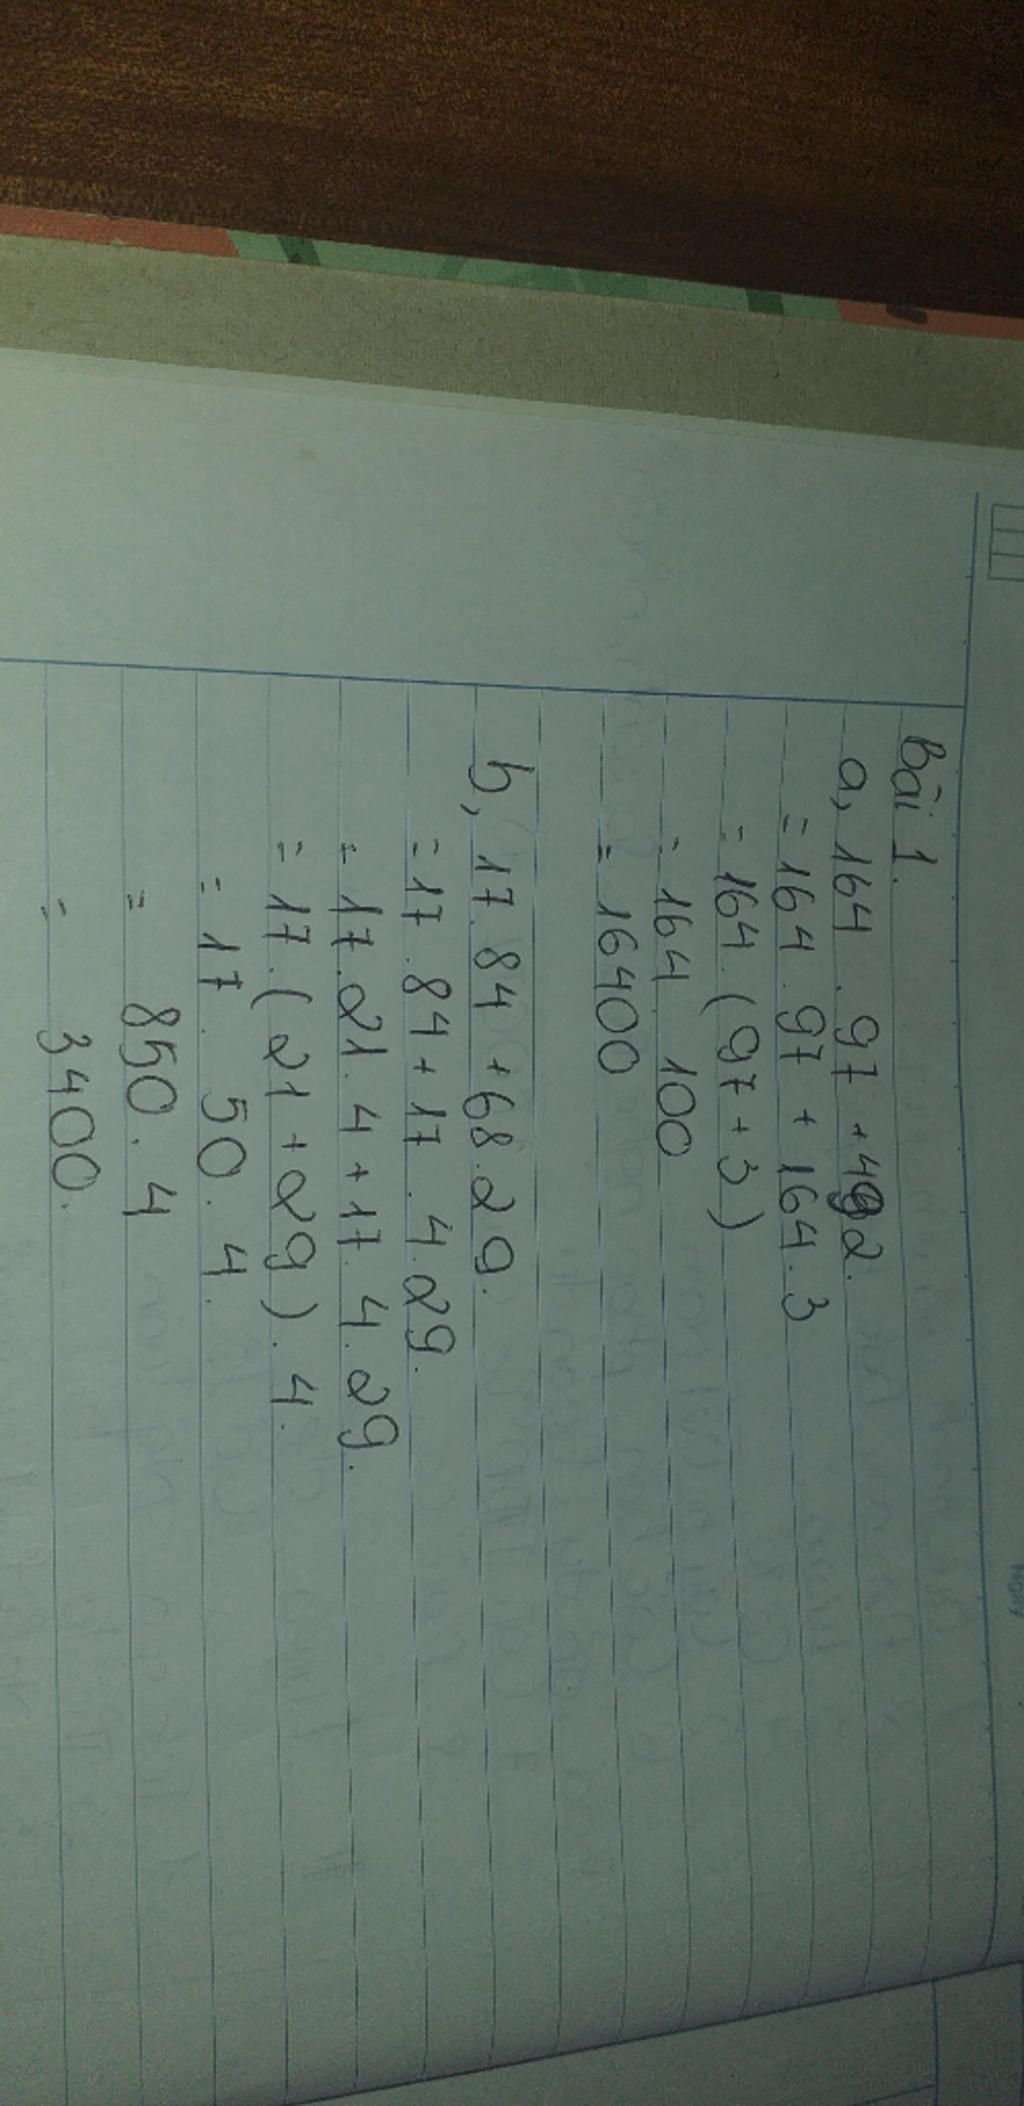 Bài 1.
a, 164 . 97 + 492.
= 164 . 97 + 164 . 3
= 164 . (97 + 3)
= 164 . 100
= 16400
b, 17 . 84 + 68 . 29.
= 17 . 84 + 17 . 4 . 29.
= 17 . 21 . 4 + 17 . 4 . 29.
= 17 . (21 + 29) . 4.
= 17 . 50 . 4.
= 850 . 4
= 3400.
Ngày